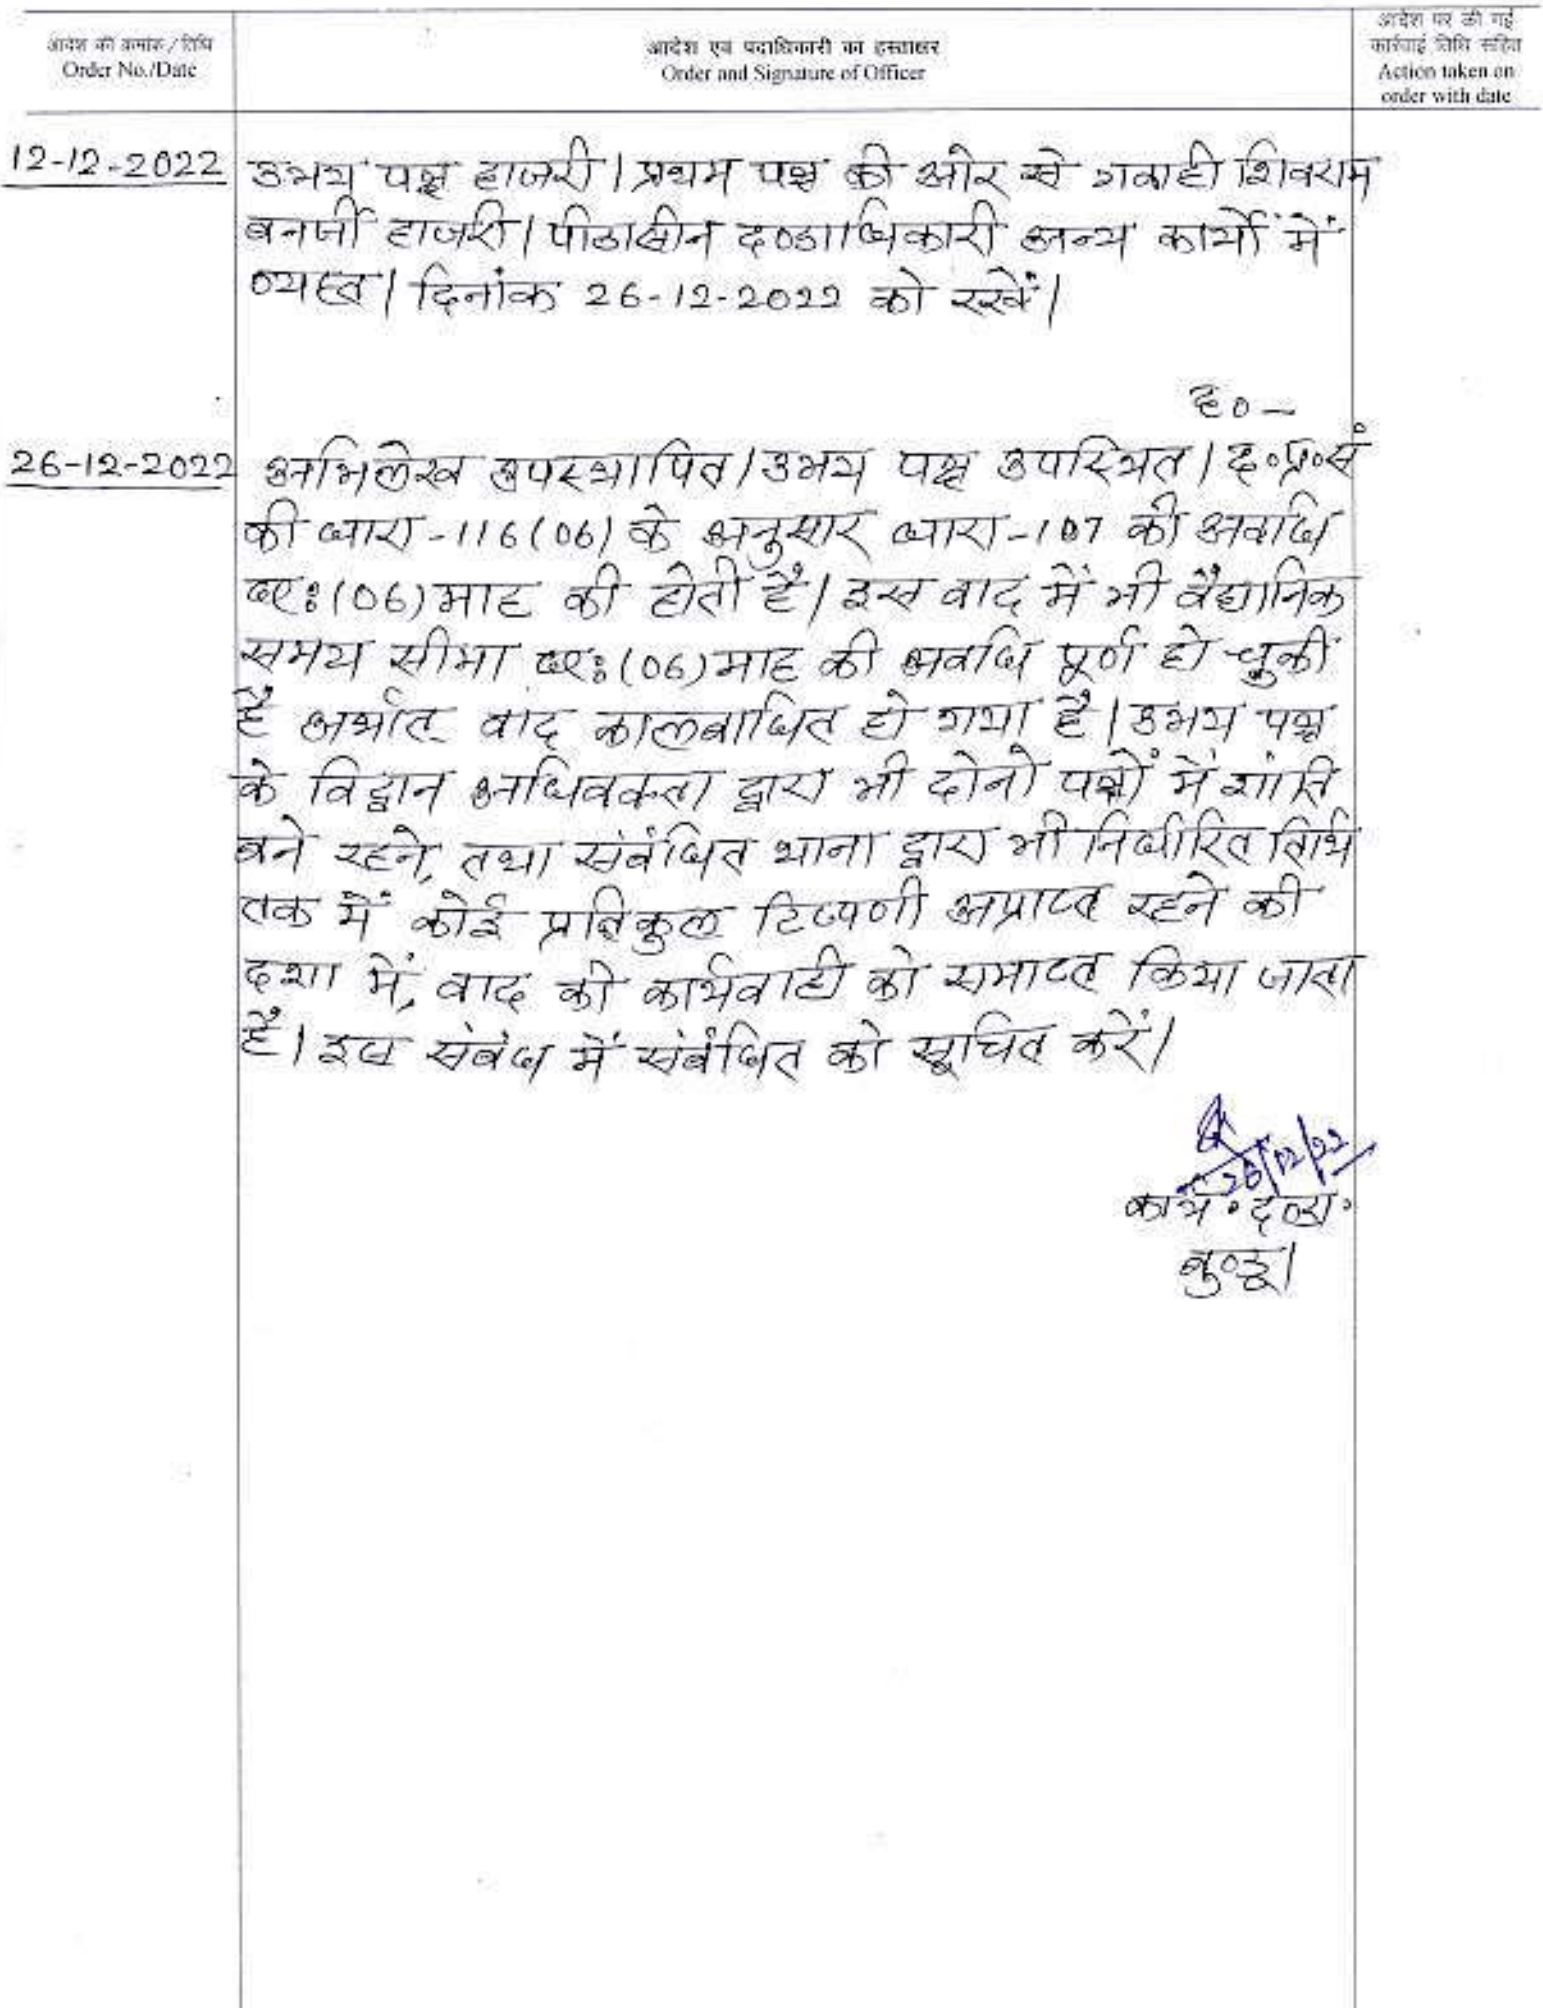 आदेश की क्रमांक / तिथि
Order No./Date
आदेश एवं पदाधिकारी का हस्ताक्षर
Order and Signature of Officer
आदेश पर की गई
कार्रवाई तिथि सहित
Action taken on
order with date
12-12-2022 उभय पक्ष हाजरी। प्रथम पक्ष की ओर से गवाही शिवराम
बनर्जी हाजरी। पीठासीन दण्डाधिकारी अन्य कार्यों में
व्यस्त। दिनांक 26-12-2022 को रखें।
ह०-
26-12-2022 अभिलेख उपस्थापित। उभय पक्ष उपस्थित। द०प्र०सं
की धारा-116(06) के अनुसार धारा-107 की अवधि
छः(06) माह की होती है। इस वाद में भी वैधानिक
समय सीमा छः(06) माह की अवधि पूर्ण हो चुकी
है अर्थात वाद कालबाधित हो गया है। उभय पक्ष
के विद्वान अधिवक्ता द्वारा भी दोनों पक्षों में शांति
बने रहने, तथा संबंधित थाना द्वारा भी निर्धारित तिथि
तक में कोई प्रतिकुल टिप्पणी अप्राप्त रहने की
दशा में, वाद की कार्यवाही को समाप्त किया जाता
है। इस संबंध में संबंधित को सूचित करें।
26/12/22
कार्य० दण्डा०
बुण्डू।